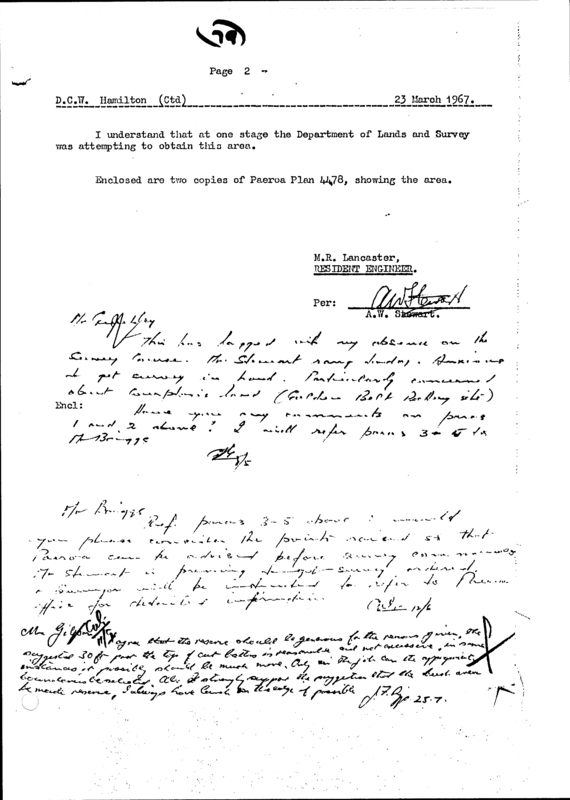 Page 2 -
D.C.W. Hamilton (Ctd) 23 March 1967.
I understand that at one stage the Department of Lands and Survey
was attempting to obtain this area.
Enclosed are two copies of Paeroa Plan 4478, showing the area.
M.R. Lancaster,
RESIDENT ENGINEER.
Per:
A.W. Stewart.
Mr
This has lagged with my absence on the
Survey Course. Mr Stewart rang today. Anxious
to get survey in hand. Particularly concerned
about land (Golden Belt Battery site)
Encl:
Have you any comments on paras
1 and 2 above? I will refer paras 3-5 to
Mr Briggs
Mr Briggs
Ref. paras 3-5 above: would
you please consider the points raised so that
Paeroa can be advised before survey commences.
Mr Stewart is survey ordered.
a Surveyor will be instructed to refer to Paeroa
office for detailed information
Mr
agree that the reserve should be generous for the reasons given, the
suggested 30 ft past the top of cut batters is reasonable and not excessive, in some
instances it possibly should be much more. Only on the job can the appropriate
boundaries be selected. Also I strongly support the suggestion that the bush area
be made reserve, I always have bush on the edge if possible
25.7.